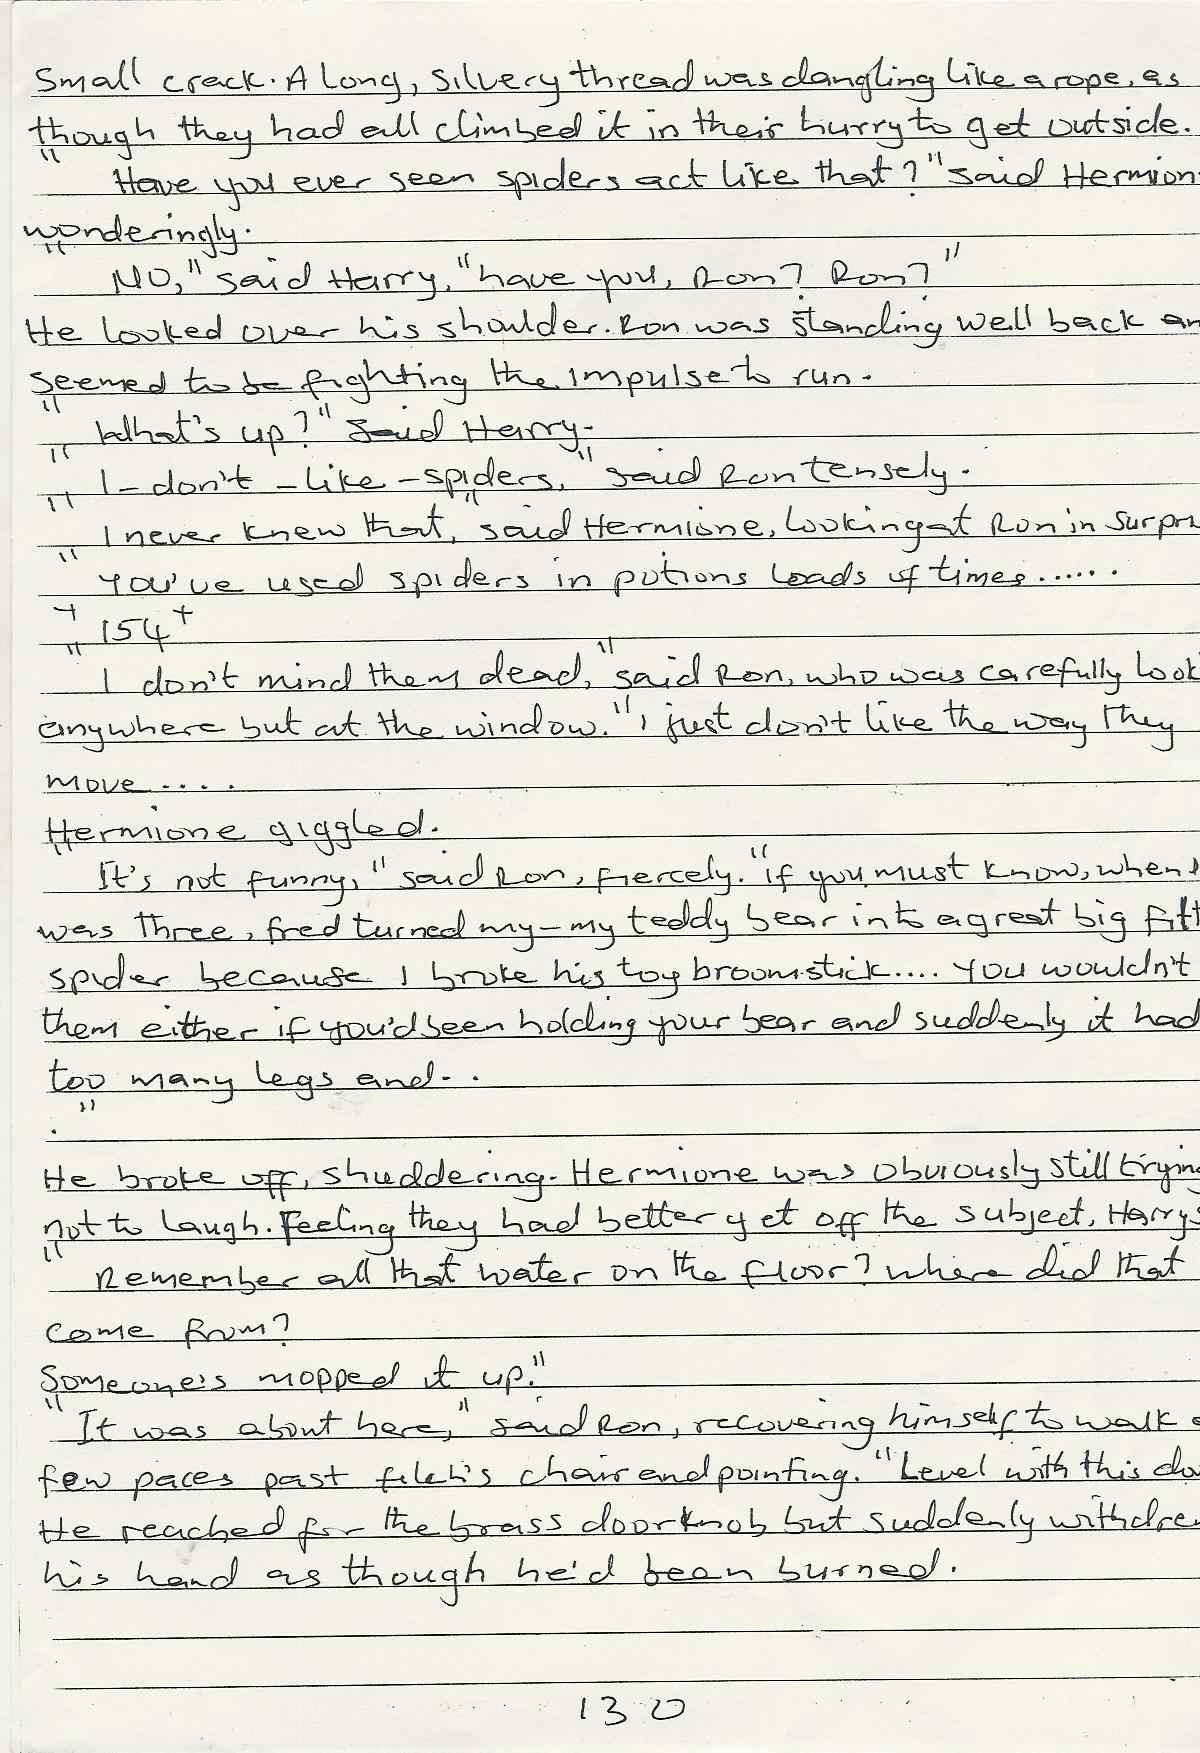 Small crack. A long, silvery thread was dangling like a rope, as
though they had all climbed it in their hurry to get outside.
"Have you ever seen spiders act like that?" said Hermion
wonderingly.
"NO," said Harry, "have you, Ron? Ron?"
He looked over his shoulder. Ron was standing well back an
seemed to be fighting the impulse to run.
"What's up?" said Harry.
"I-don't-like-spiders," said Ron tensely.
"I never knew that," said Hermione, looking at Ron in surpri
"You've used spiders in potions loads of times......
+ 154 +
"I don't mind them dead," said Ron, who was carefully look
anywhere but at the window. "I just don't like the way they
move....
Hermione giggled.
"It's not funny," said Ron, fiercely. "if you must know, when I
was three, fred turned my-my teddy bear into a great big filt
spider because I broke his toy broomstick.... you wouldn't
them either if you'd been holding your bear and suddenly it had
too many legs and..
."
He broke off, shuddering. Hermione was obviously still trying
not to laugh. Feeling they had better get off the subject, Harry s
"Remember all that water on the floor? where did that
come from?
Someone's mopped it up."
"It was about here," said Ron, recovering himself to walk a
few paces past filch's chair and pointing. "Level with this do
He reached for the brass doorknob but suddenly withdrew
his hand as though he'd been burned.
130